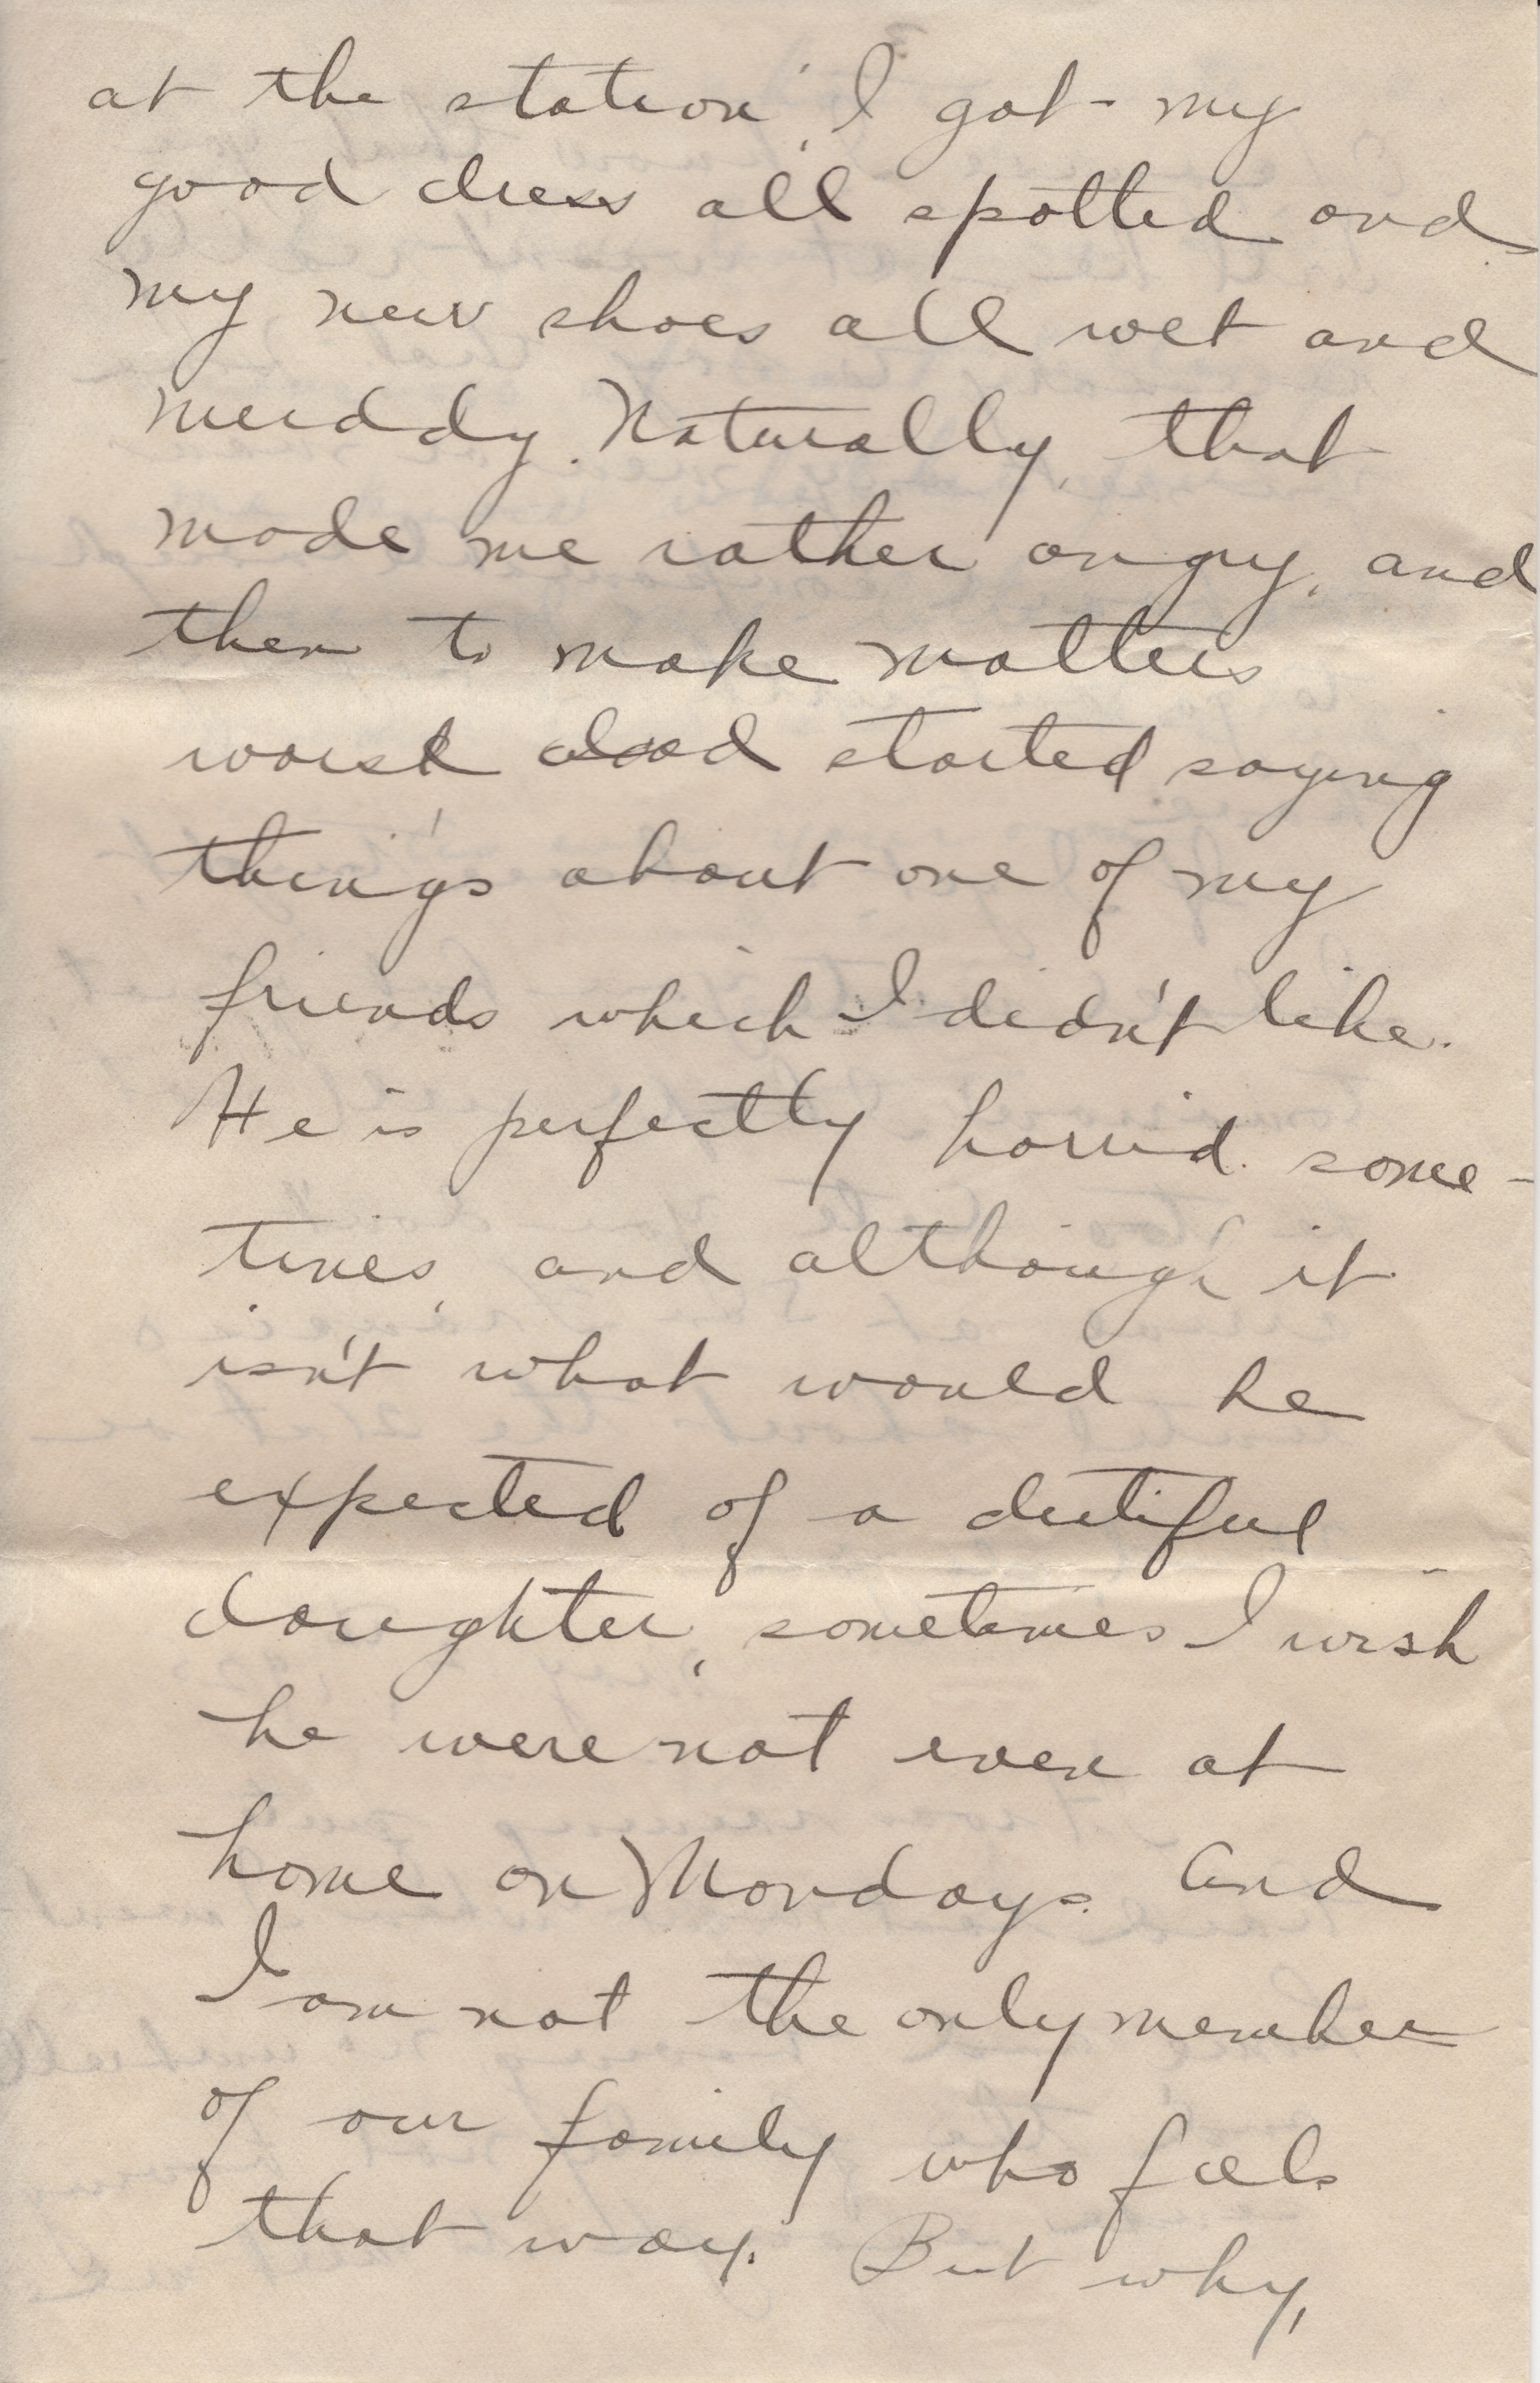 at the station, I got my
good dress all spotted and
my new shoes all wet and
muddy. Naturally, that
made me rather angry, and
then to make matters
worse dad started saying
things about one of my
friends which I didn't like.
He is perfectly horrid some-
times, and although it
isn't what would be
expected of a dutiful
daughter, sometimes I wish
he were not even at
home on Mondays. And
I am not the only member
of our family who feels
that way. But why,